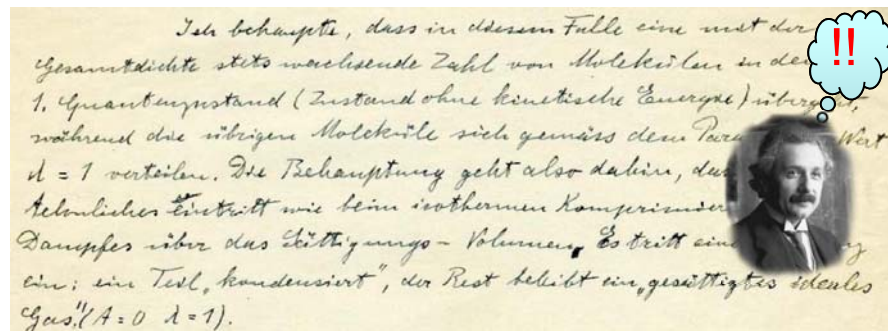 Ich behaupte, dass in diesem Falle eine mit der
Gesamtdichte stets wachsende Zahl von Molekülen in den
1. Quantenzustand (Zustand ohne kinetische Energie) übergeht,
während die übrigen Moleküle sich gemäss dem Wert
λ = 1 verteilen. Die Behauptung geht also dahin, dass
Aehnliches eintritt wie beim isothermen
Dampfes über das Sättigungs-Volumen. Es tritt eine
ein: ein Teil „kondensiert", der Rest bleibt ein „gesättigtes ideales
Gas" (A = 0 λ = 1).
!!